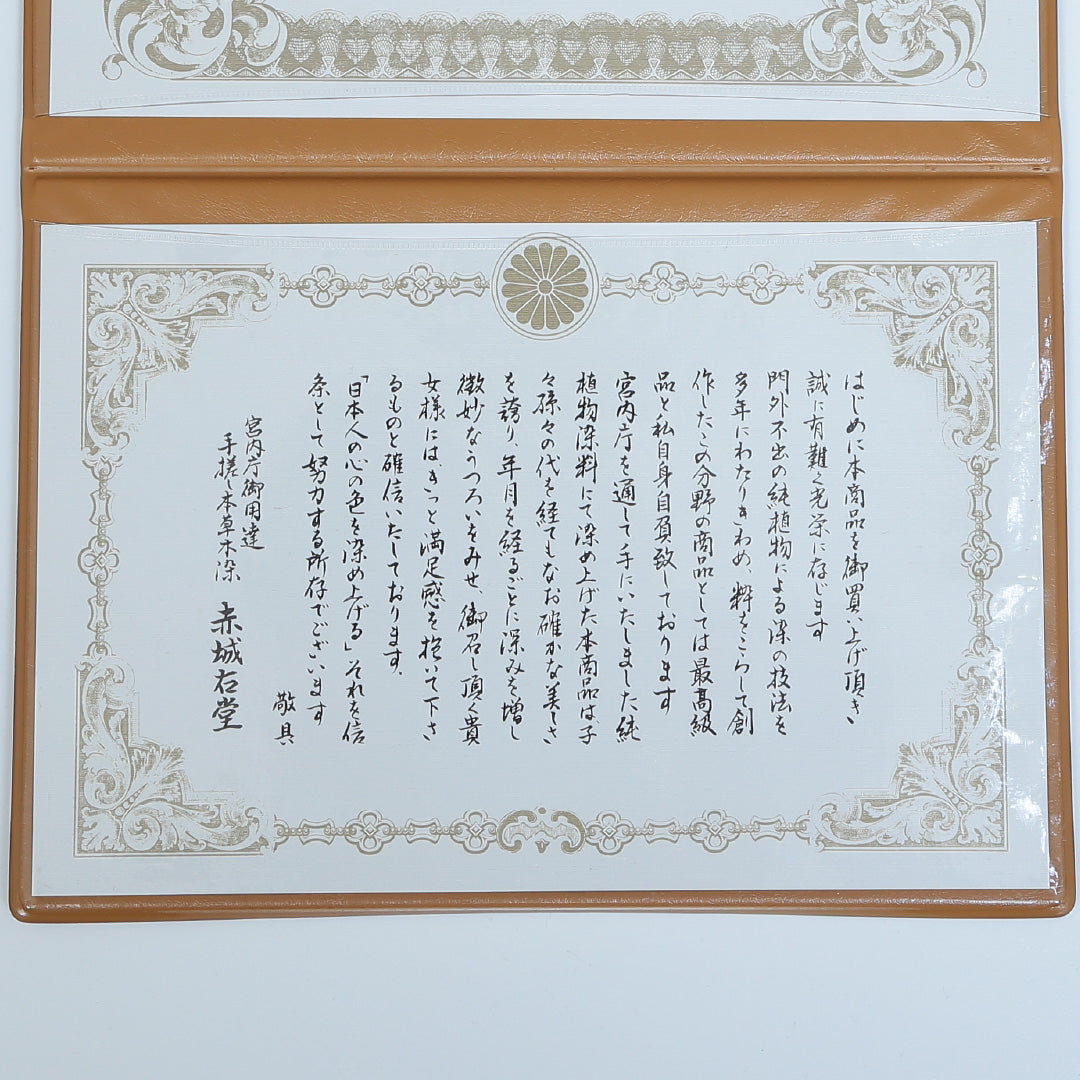 はじめに本商品を御買い上げ頂き
誠に有難く光栄に存じます
門外不出の純植物による染の技法を
多年にわたりきわめ、粋をこらして創
作したこの分野の商品としては最高級
品と私自身自負致しております
宮内庁を通して手にいたしました純
植物染料にて染め上げた本商品は子
々孫々の代を経てもなお確かな美しさ
を誇り、年月を経るごとに深みを増し
微妙なうつろいをみせ、御召し頂く貴
女様には、きっと満足感を抱いて下さ
るものと確信いたしております。
「日本人の心の色を染め上げる」それを信
条として努力する所存でございます
敬具
宮内庁御用達
手搓し本草木染 赤城右堂